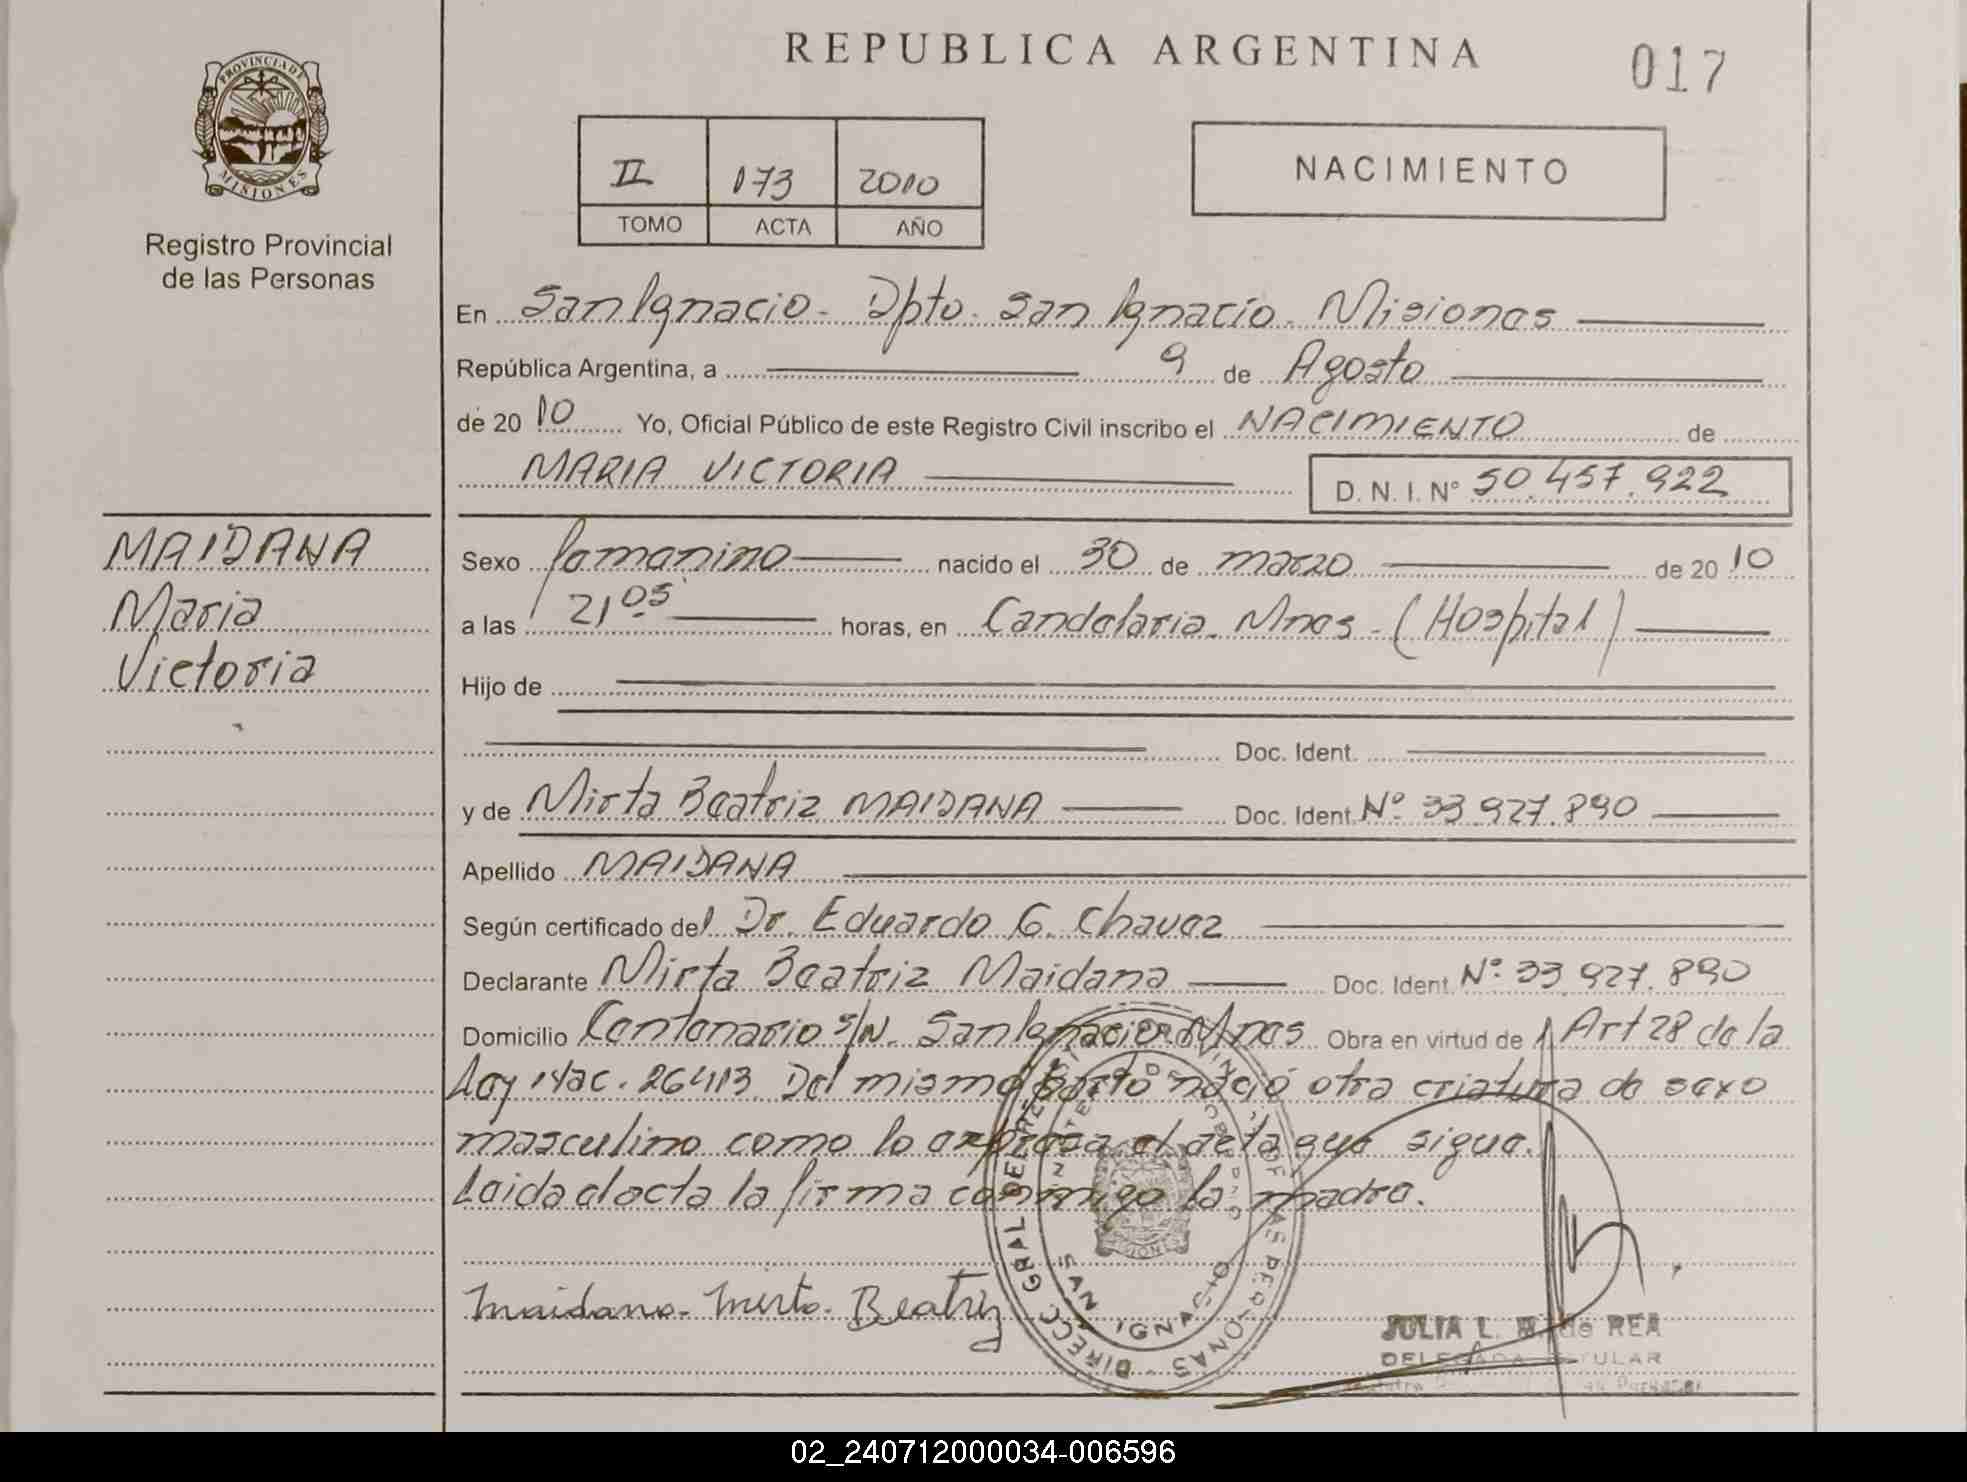 REPUBLICA ARGENTINA
017
PROVINCIA DE MISIONES
Registro Provincial
de las Personas
II 173 2010
TOMO ACTA AÑO
NACIMIENTO
En San Ignacio - Dpto. San Ignacio. Misiones
República Argentina, a 9 de Agosto
de 20 10 Yo, Oficial Público de este Registro Civil inscribo el NACIMIENTO de
MARIA VICTORIA D. N. I. Nº 50.457.922
MAIDANA
Maria
Victoria
Sexo femenino nacido el 30 de marzo de 20 10
a las 21,05 horas, en Candelaria. Mnes - (Hospital)
Hijo de
Doc. Ident.
y de Mirta Beatriz MAIDANA Doc. Ident. Nº 33.927.890
Apellido MAIDANA
Según certificado del Dr. Eduardo G. Chavez
Declarante Mirta Beatriz Maidana Doc. Ident. Nº 33.927.890
Domicilio Centenario s/N. San Ignacio. Mnes Obra en virtud de Art 28 de la
Ley Nac. 26413. Del mismo parto nació otra criatura de sexo
masculino como lo expresa el acta que sigue.
Leida el acta la firma conmigo la madre.
Maidana - Mirta - Beatriz
DIRECC GRAL DEL REGISTRO PROVINCIAL DE LAS PERSONAS
SAN IGNACIO
MISIONES
JULIA L. de REA
DELEGADA TITULAR
02_240712000034-006596